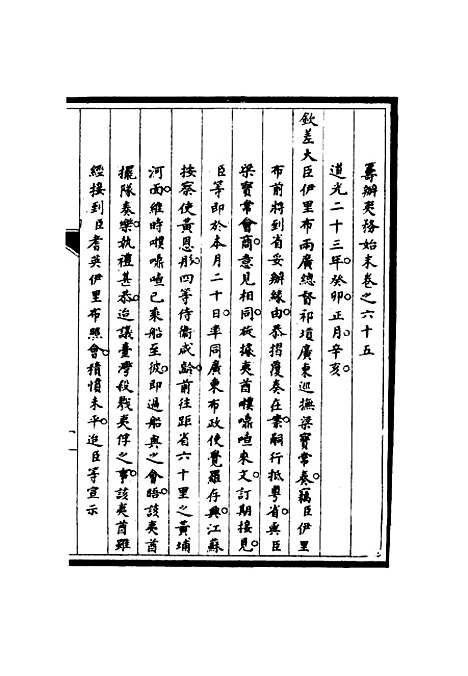 籌辦夷務始末卷之六十五
道光二十三年癸卯正月辛亥。
欽差大臣伊里布兩廣總督祁墳廣東巡撫梁寶常奏。竊臣伊里
布前將到省妥辦緣由。恭摺覆奏在案。嗣行抵粵省。與臣
梁寶常會商。意見相同。旋據夷酋樸嘪喳來文。訂期接見。
臣等即於本月二十日。率同廣東布政使覺羅存興。江蘇
按察使黃恩彤。四等侍衛咸齡。前往距省六十里之黃埔
河面。維時樸嘪喳已乘船至彼。即過船與之會晤。該夷酋
擺隊奏樂。執禮甚恭。迨議臺灣殺戮夷俘之事。該夷酋雖
經接到臣耆英伊里布照會。積憤未平。迨臣等宣示